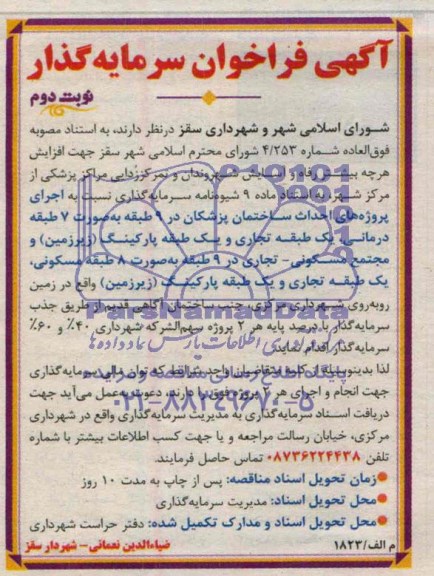 آگهی فراخوان سرمایه‌گذار
نوبت دوم
شـورای اسلامی شهر و شهرداری سقز درنظر دارند، به استناد مصوبه
فوق‌العاده شماره ۴/۲۵۳ شورای محترم اسلامی شهر سقز جهت افزایش
هرچه بیشتر رفاه و آسایش شهروندان و تمرکززدایی مراکز پزشکی از
مرکز شهر، به استناد ماده ۹ شیوه‌نامه سرمایه‌گذاری نسبت به اجرای
پروژه‌های احداث ساختمان پزشکان در ۹ طبقه به‌صورت ۷ طبقه
درمانی، یک طبقه تجاری و یک طبقه پارکینگ (زیرزمین) و
مجتمع مسکونی- تجاری در ۹ طبقه به‌صورت ۸ طبقه مسکونی،
یک طبقه تجاری و یک طبقه پارکینگ (زیرزمین) واقع در زمین
روبه‌روی شهرداری مرکزی، جنب ساختمان آگاهی قدیم از طریق جذب
سرمایه‌گذار با درصد پایه هر ۲ پروژه سهم‌الشرکه شهرداری ۴۰٪ و ۶۰٪
سرمایه‌گذار اقدام نمایند.
لذا بدینوسیله از کلیه متقاضیان واجد شرایط که توان مالی سرمایه‌گذاری
جهت انجام و اجرای هر ۲ پروژه فوق را دارند، دعوت به‌عمل می‌آید جهت
دریافت اسناد سرمایه‌گذاری به مدیریت سرمایه‌گذاری واقع در شهرداری
مرکزی، خیابان رسالت مراجعه و یا جهت کسب اطلاعات بیشتر با شماره
تلفن ۰۸۷۳۶۲۲۴۴۳۸ تماس حاصل فرمایند.
●زمان تحویل اسناد مناقصه: پس از چاپ به مدت ۱۰ روز
●محل تحویل اسناد: مدیریت سرمایه‌گذاری
●محل تحویل اسناد و مدارک تکمیل شده: دفتر حراست شهرداری
م الف/۱۸۲۳
ضیاءالدین نعمانی- شهردار سقز
ParsNamadData
پایگاه اطلاع رسانی مناقصه و مزایده
۰۲۱-۸۸۳۴۹۶۷۰-۵